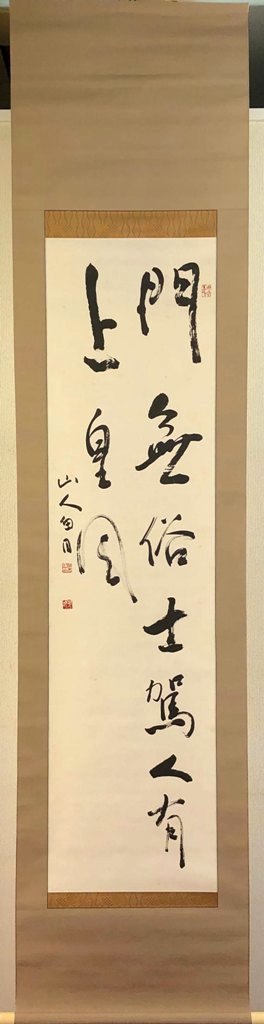 門無俗士駕人有
上皇風
山人